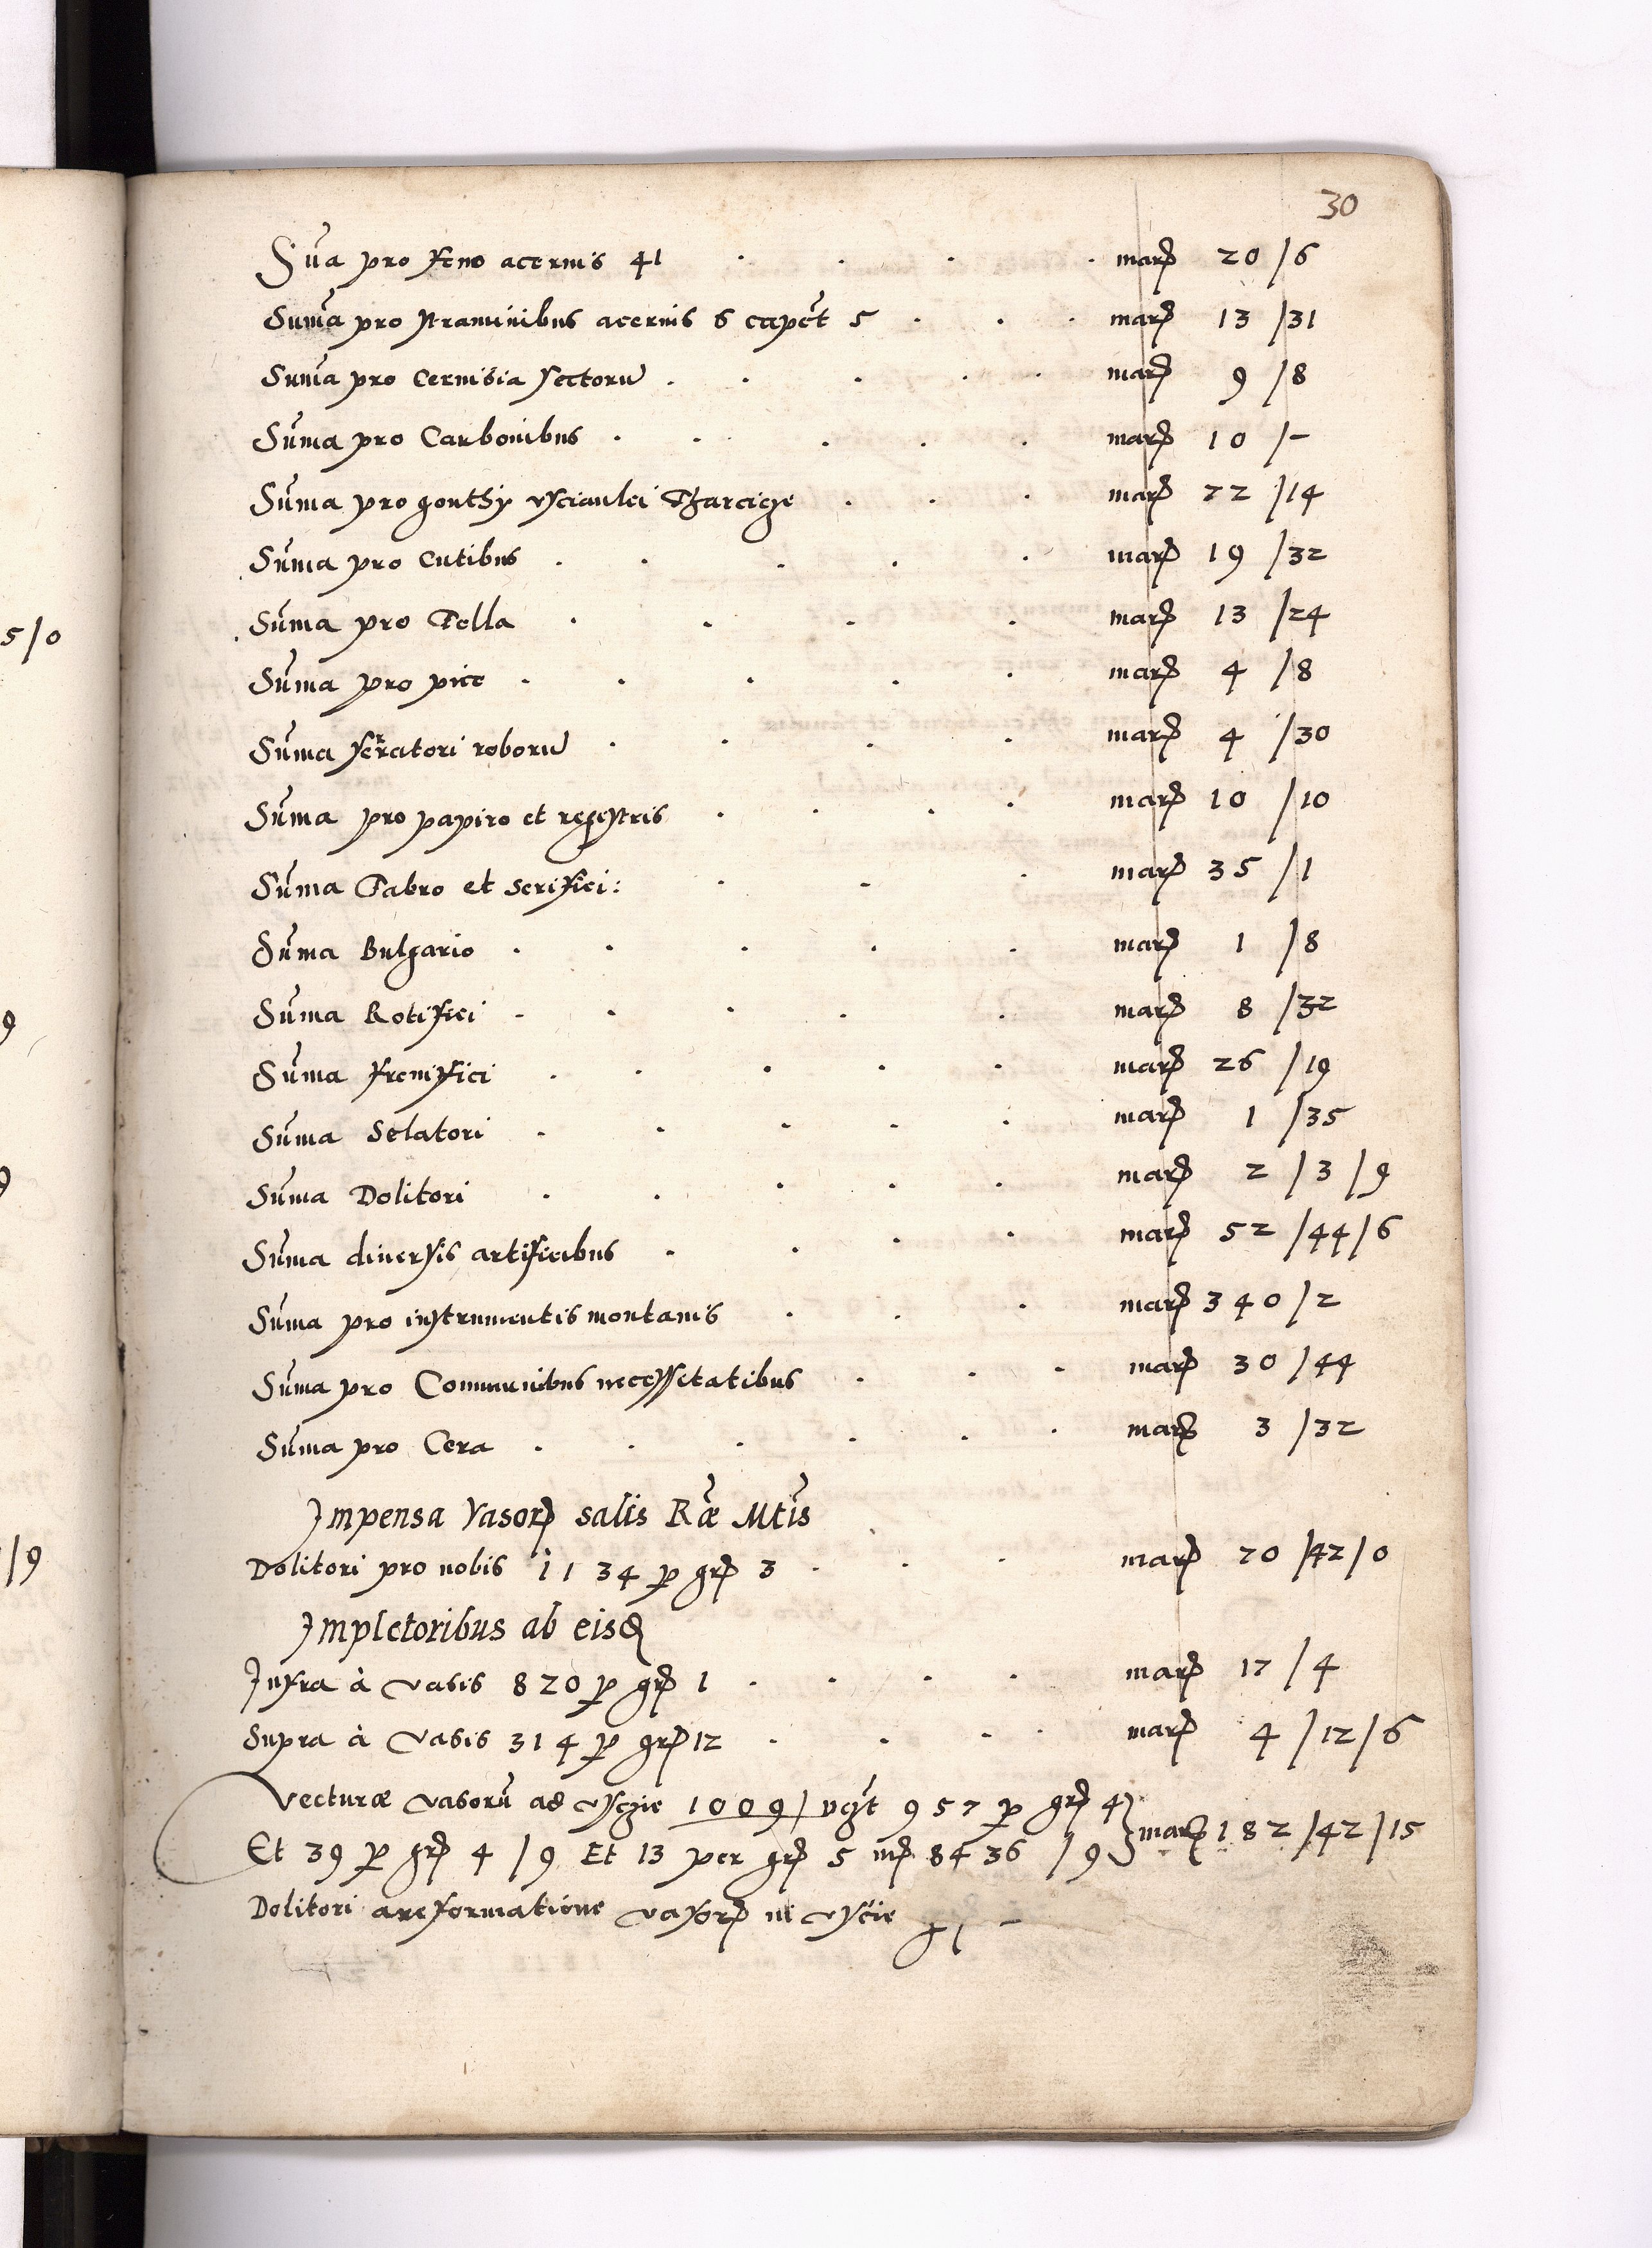 30
Sũa pro feno aceruis 41 . . . . marc 20 /6
Sum̃a pro straminibus aceruis 6 capet 5 . . . marc 13 /31
Sum̃a pro Ceruisia sectorũ . . . . . marc 9 /8
Sum̃a pro Carbonibus . . . . . marc 10 /-
Sum̃a pro gonthy . . . marc 22 /14
Sum̃a pro Cutibus . . . . . marc 19 /32
Sum̃a pro Tella . . . . marc 13 /24
Sum̃a pro pice . . . . . marc 4 /8
Sum̃a serratori roborũ . . . . marc 4 /30
Sum̃a pro papiro et regestris . . . . marc 10 /10
Sum̃a Fabro et serifici: . . . marc 35 /1
Sum̃a Bulgario . . . . . marc 1 /8
Sum̃a Rotifici . . . . . marc 8 /32
Sum̃a frenifici . . . . . marc 26 /19
Sum̃a Selatori . . . . . marc 1 /35
Sum̃a Dolitori . . . . . marc 2 /3 /9
Sum̃a diuersis artificibus . . . . marc 52 /44/6
Sum̃a pro instrumentis montanis . . . marc 340 /2
Sum̃a pro Communibus necessitatibus . . . marc 30 /44
Sum̃a pro Cera . . . . . . marc 3 /32
Impensa Vasor salis Ræ Mtis
Dolitori pro nobis 1134 p gr 3 . . . marc 20 /42/0
Impletoribus ab eisd
Infra à vasis 820 p gr 1 . . . . marc 17 /4
Supra à vasis 314 p gr 12 . . . . marc 4 /12/6
Vecturæ vasorũ ad 1009/ 957 p gr 4
Et 39 p gr 4 /9 Et 13 per gr 5 8436 /9 marc 182 /42/15
Dolitori a reformatione vasor in
5/0
9
/9